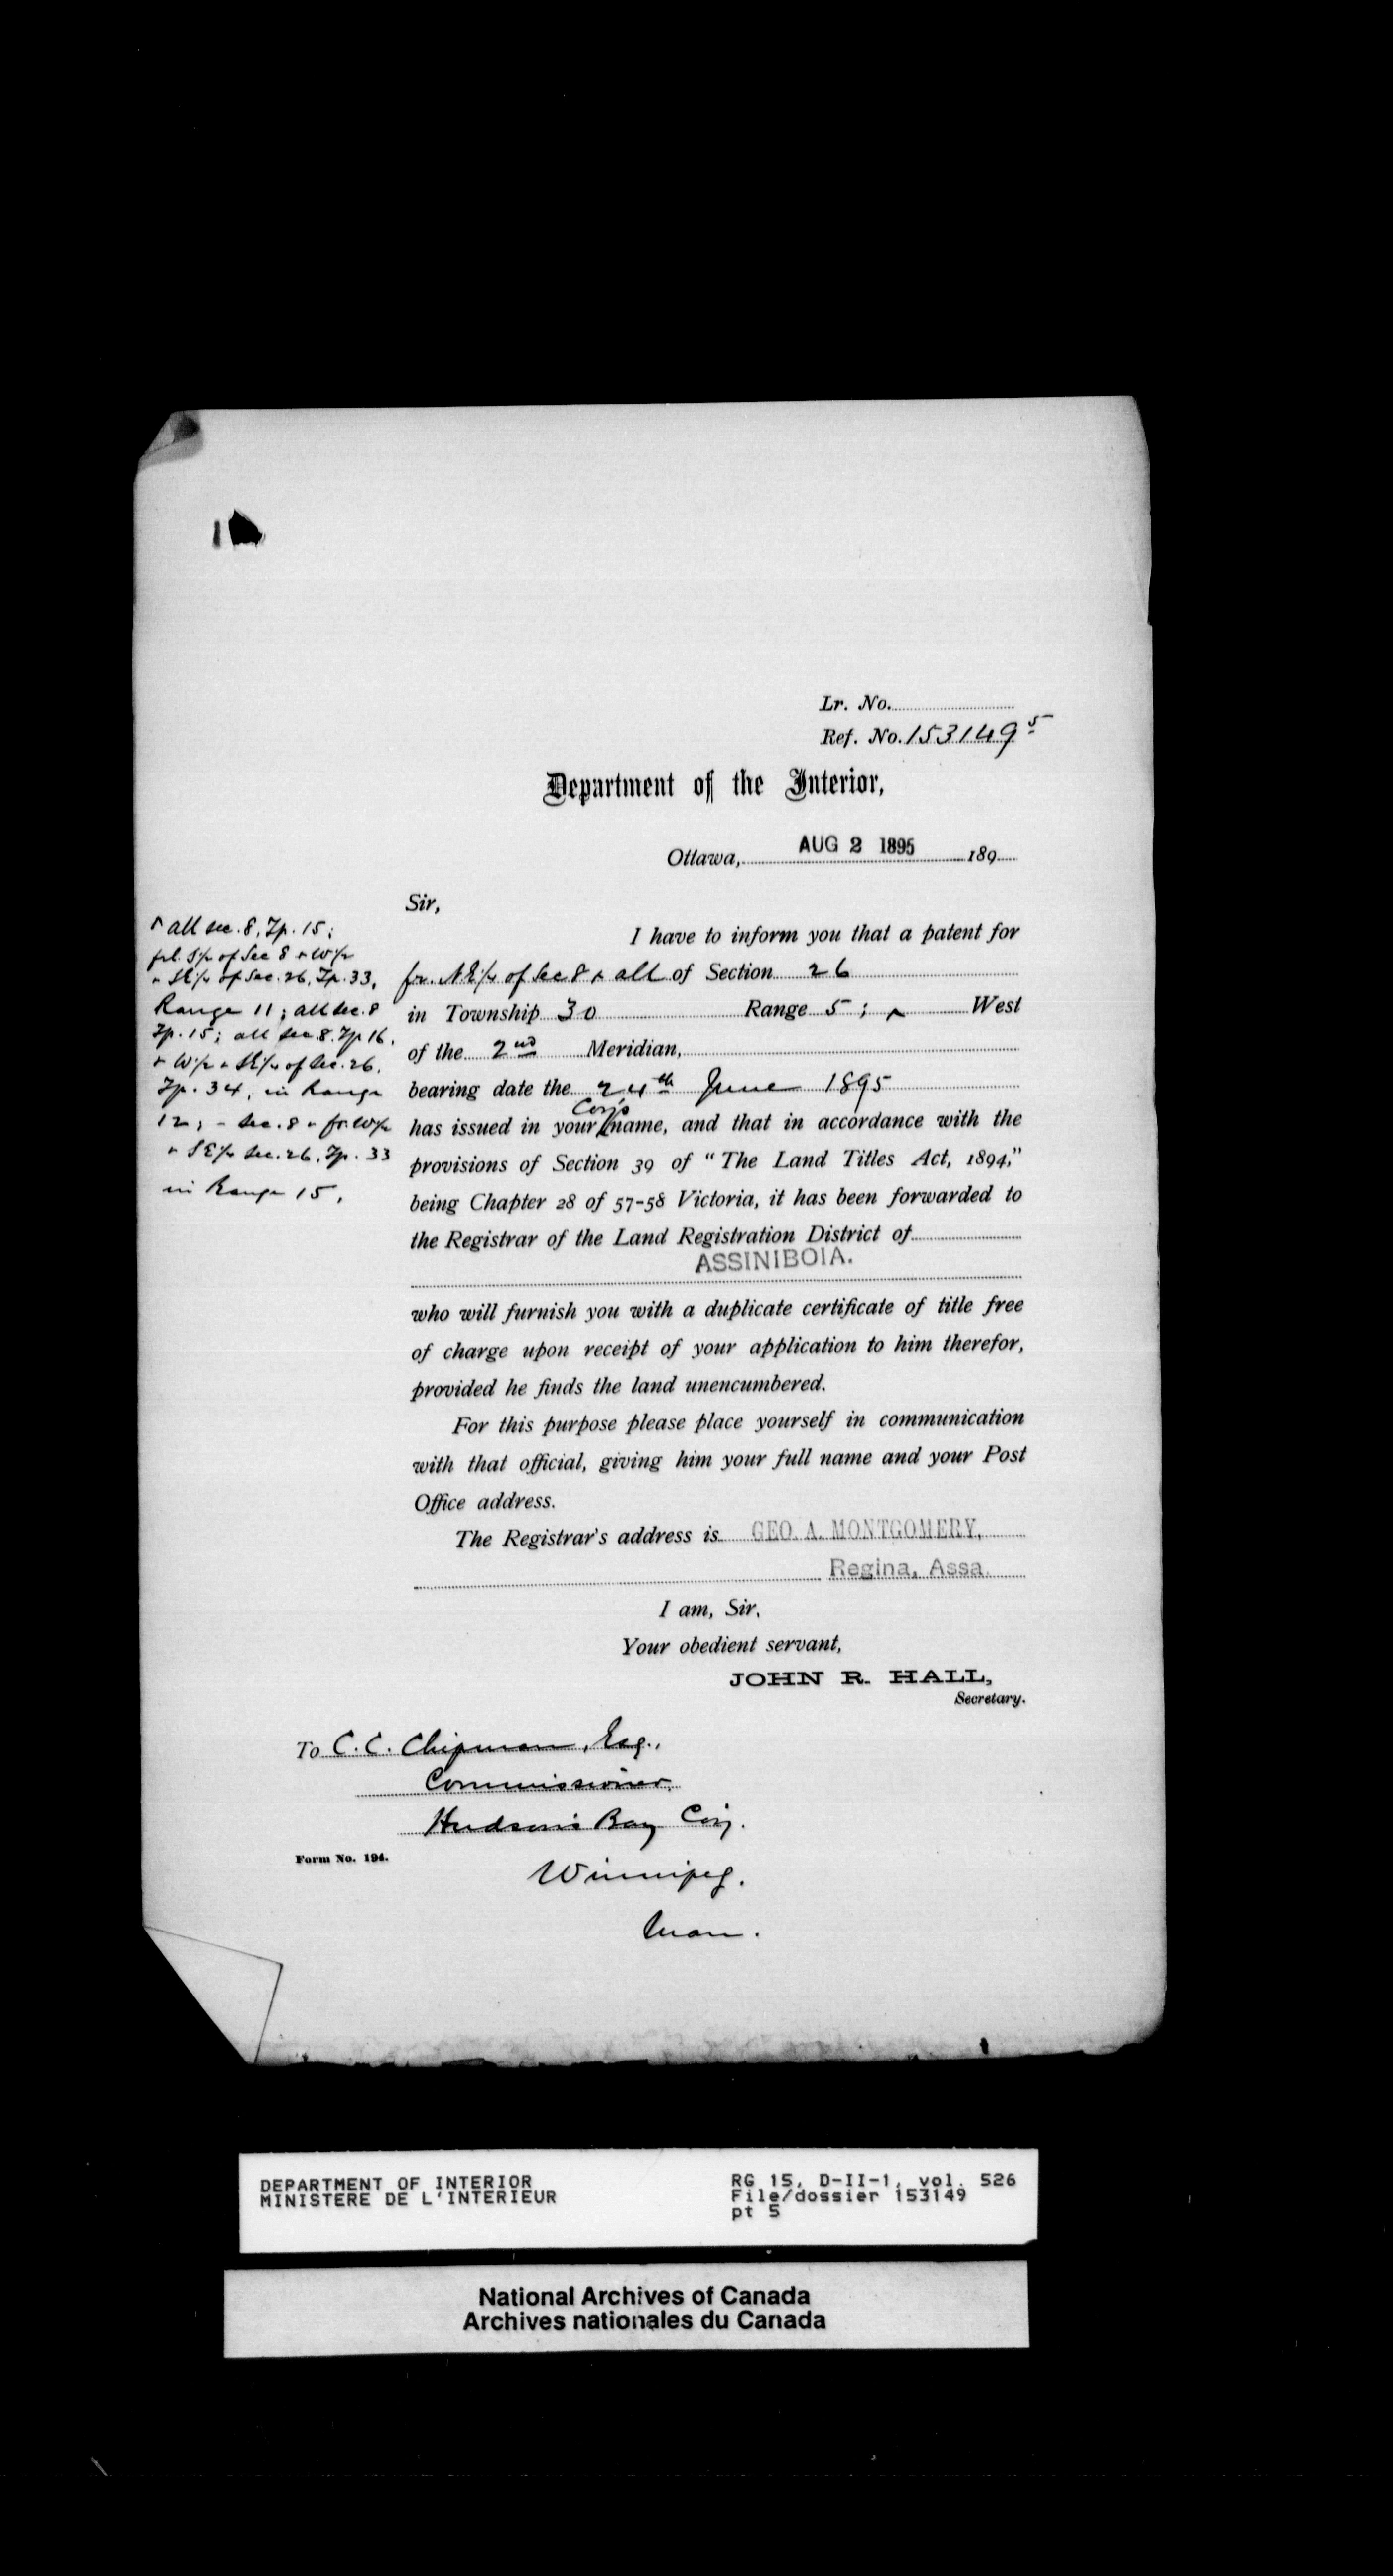 Lr. No.
Ref. No. 153149 5
Department of the Interior,
Ottawa, AUG 2 1895 189
Sir,
I have to inform you that a patent for
fr. N.E/4 of Sec 8 & all of Section 26
in Township 30 Range 5 ; ^ West
of the 2nd Meridian,
bearing date the 24th June 1895
Coy's
has issued in your name, and that in accordance with the
provisions of Section 39 of "The Land Titles Act, 1894,"
being Chapter 28 of 57-58 Victoria, it has been forwarded to
the Registrar of the Land Registration District of
ASSINIBOIA.
who will furnish you with a duplicate certificate of title free
of charge upon receipt of your application to him therefor,
provided he finds the land unencumbered.
For this purpose please place yourself in communication
with that official, giving him your full name and your Post
Office address.
The Registrar's address is GEO. A. MONTGOMERY,
Regina, Assa.
I am, Sir,
Your obedient servant,
JOHN R. HALL,
Secretary.
^ all sec. 8, Tp. 15;
S/2 of Sec 8 & W/2
& SE/4 of Sec. 26, Tp. 33,
Range 11; all sec. 8
Tp. 15; all sec. 8. Tp 16.
& W/2 & SE/4 of Sec. 26.
Tp. 34, in Range
12; - sec. 8 & fr. W/2
& SE/4 Sec. 26, Tp. 33
in Range 15,
To C. C. Chipman, Esq.,
Commissioner,
Hudson's Bay Coy.
Winnipeg.
Man.
Form No. 194.
DEPARTMENT OF INTERIOR
MINISTERE DE L'INTERIEUR
RG 15, D-II-1, vol. 526
File/dossier 153149
pt 5
National Archives of Canada
Archives nationales du Canada